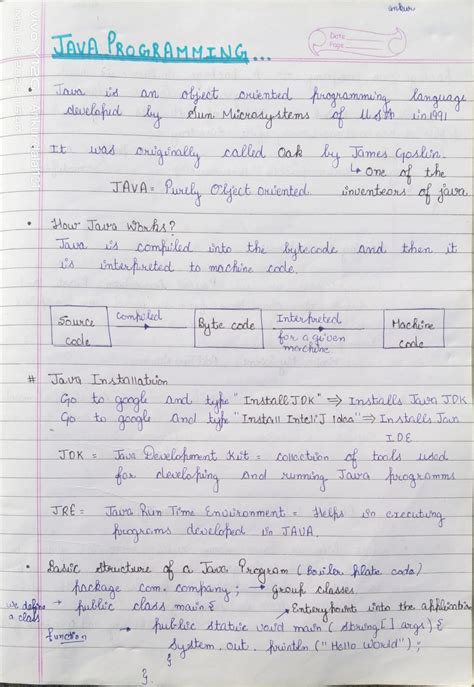 ankur
JAVA PROGRAMMING...
Date
Page
• Java is an object oriented programming language
developed by Sun Microsystems of USA in 1991
• It was originally called Oak by James Goslin.
↳ One of the
JAVA = Purely Object oriented. inventeors of java
• How Java Works?
Java is compiled into the bytecode and then it
is interpreted to machine code.
Source code
compiled
Byte code
Interpreted
for a given machine
Machine code
# Java Installation
Go to google and type "Install JDK" ⇒ Installs Java JDK
Go to google and type "Install InteliJ Idea" ⇒ Installs Java
IDE
JDK = Java Development Kit = collection of tools used
for developing and running Java programms
JRE = Java Run Time Environment = Helps in executing
programs developed in JAVA.
• Basic Structure of a Java Program (Boiler plate code)
package com.company; → group classes
we define a class → public class main {
→ Entery point into the application
function → public static void main (String[] args) {
System.out.println ("Hello World");
}
}